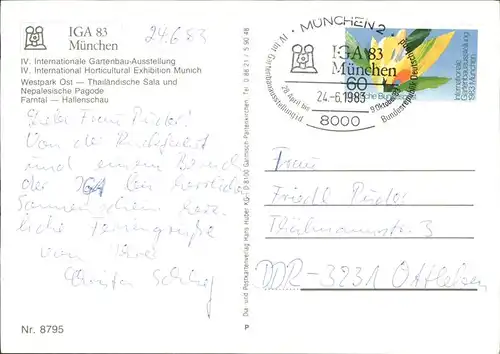 IGA 83
München
24.6.83
IV. Internationale Gartenbau-Ausstellung
IV. International Horticultural Exhibition Munich
Westpark Ost — Thailändische Sala und
Nepalesische Pagode
Farntal — Hallenschau
Liebe Frau Püder!
Von der
und einem Besuch
der IGA bei herrlichem
Sonnenschein herz-
liche Feriengrüße
von Ihrer
Christa
Nr. 8795
Dia- und Postkartenverlag Hans Huber KG · D-8100 Garmisch-Partenkirchen · Tel. 0 88 21 / 5 90 48
P
MÜNCHEN 2
IV. Int. Gartenbauausstellung
28. April bis
9. Oktober
Bundesrepublik Deutschland
IGA 83
München
24.-6.1983
8000
60
Internationale
Gartenbauausstellung
1983 München
Frau
Friedl Püder
Thälmannstr. 3
DDR-3231 Ottleben